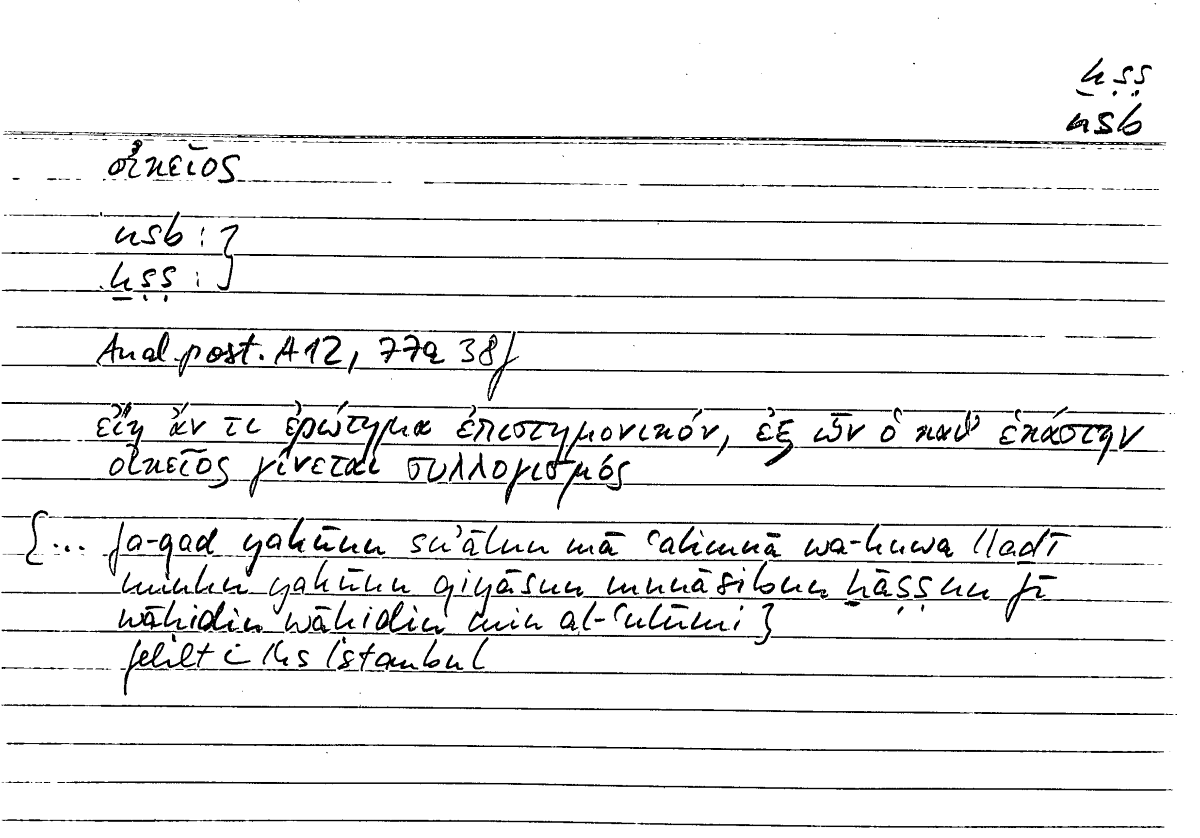 ḫṣṣ
nsb
οἰκεῖος
nsb : }
ḫṣṣ : }
Anal. post. A 12, 77a 38f
εἴη ἄν τι ἐρώτημα ἐπιστημονικόν, ἐξ ὧν ὁ καθ' ἑκάστην
οἰκεῖος γίνεται συλλογισμός
{... fa-qad yakūnu su'ālun mā ʿalimnā wa-huwa lladī
minhu yakūnu qiyāsun munāsibun ḫāṣṣun fī
wāhidin wāhidin min al-ʿulūmi}
fehlt i Hs Istanbul